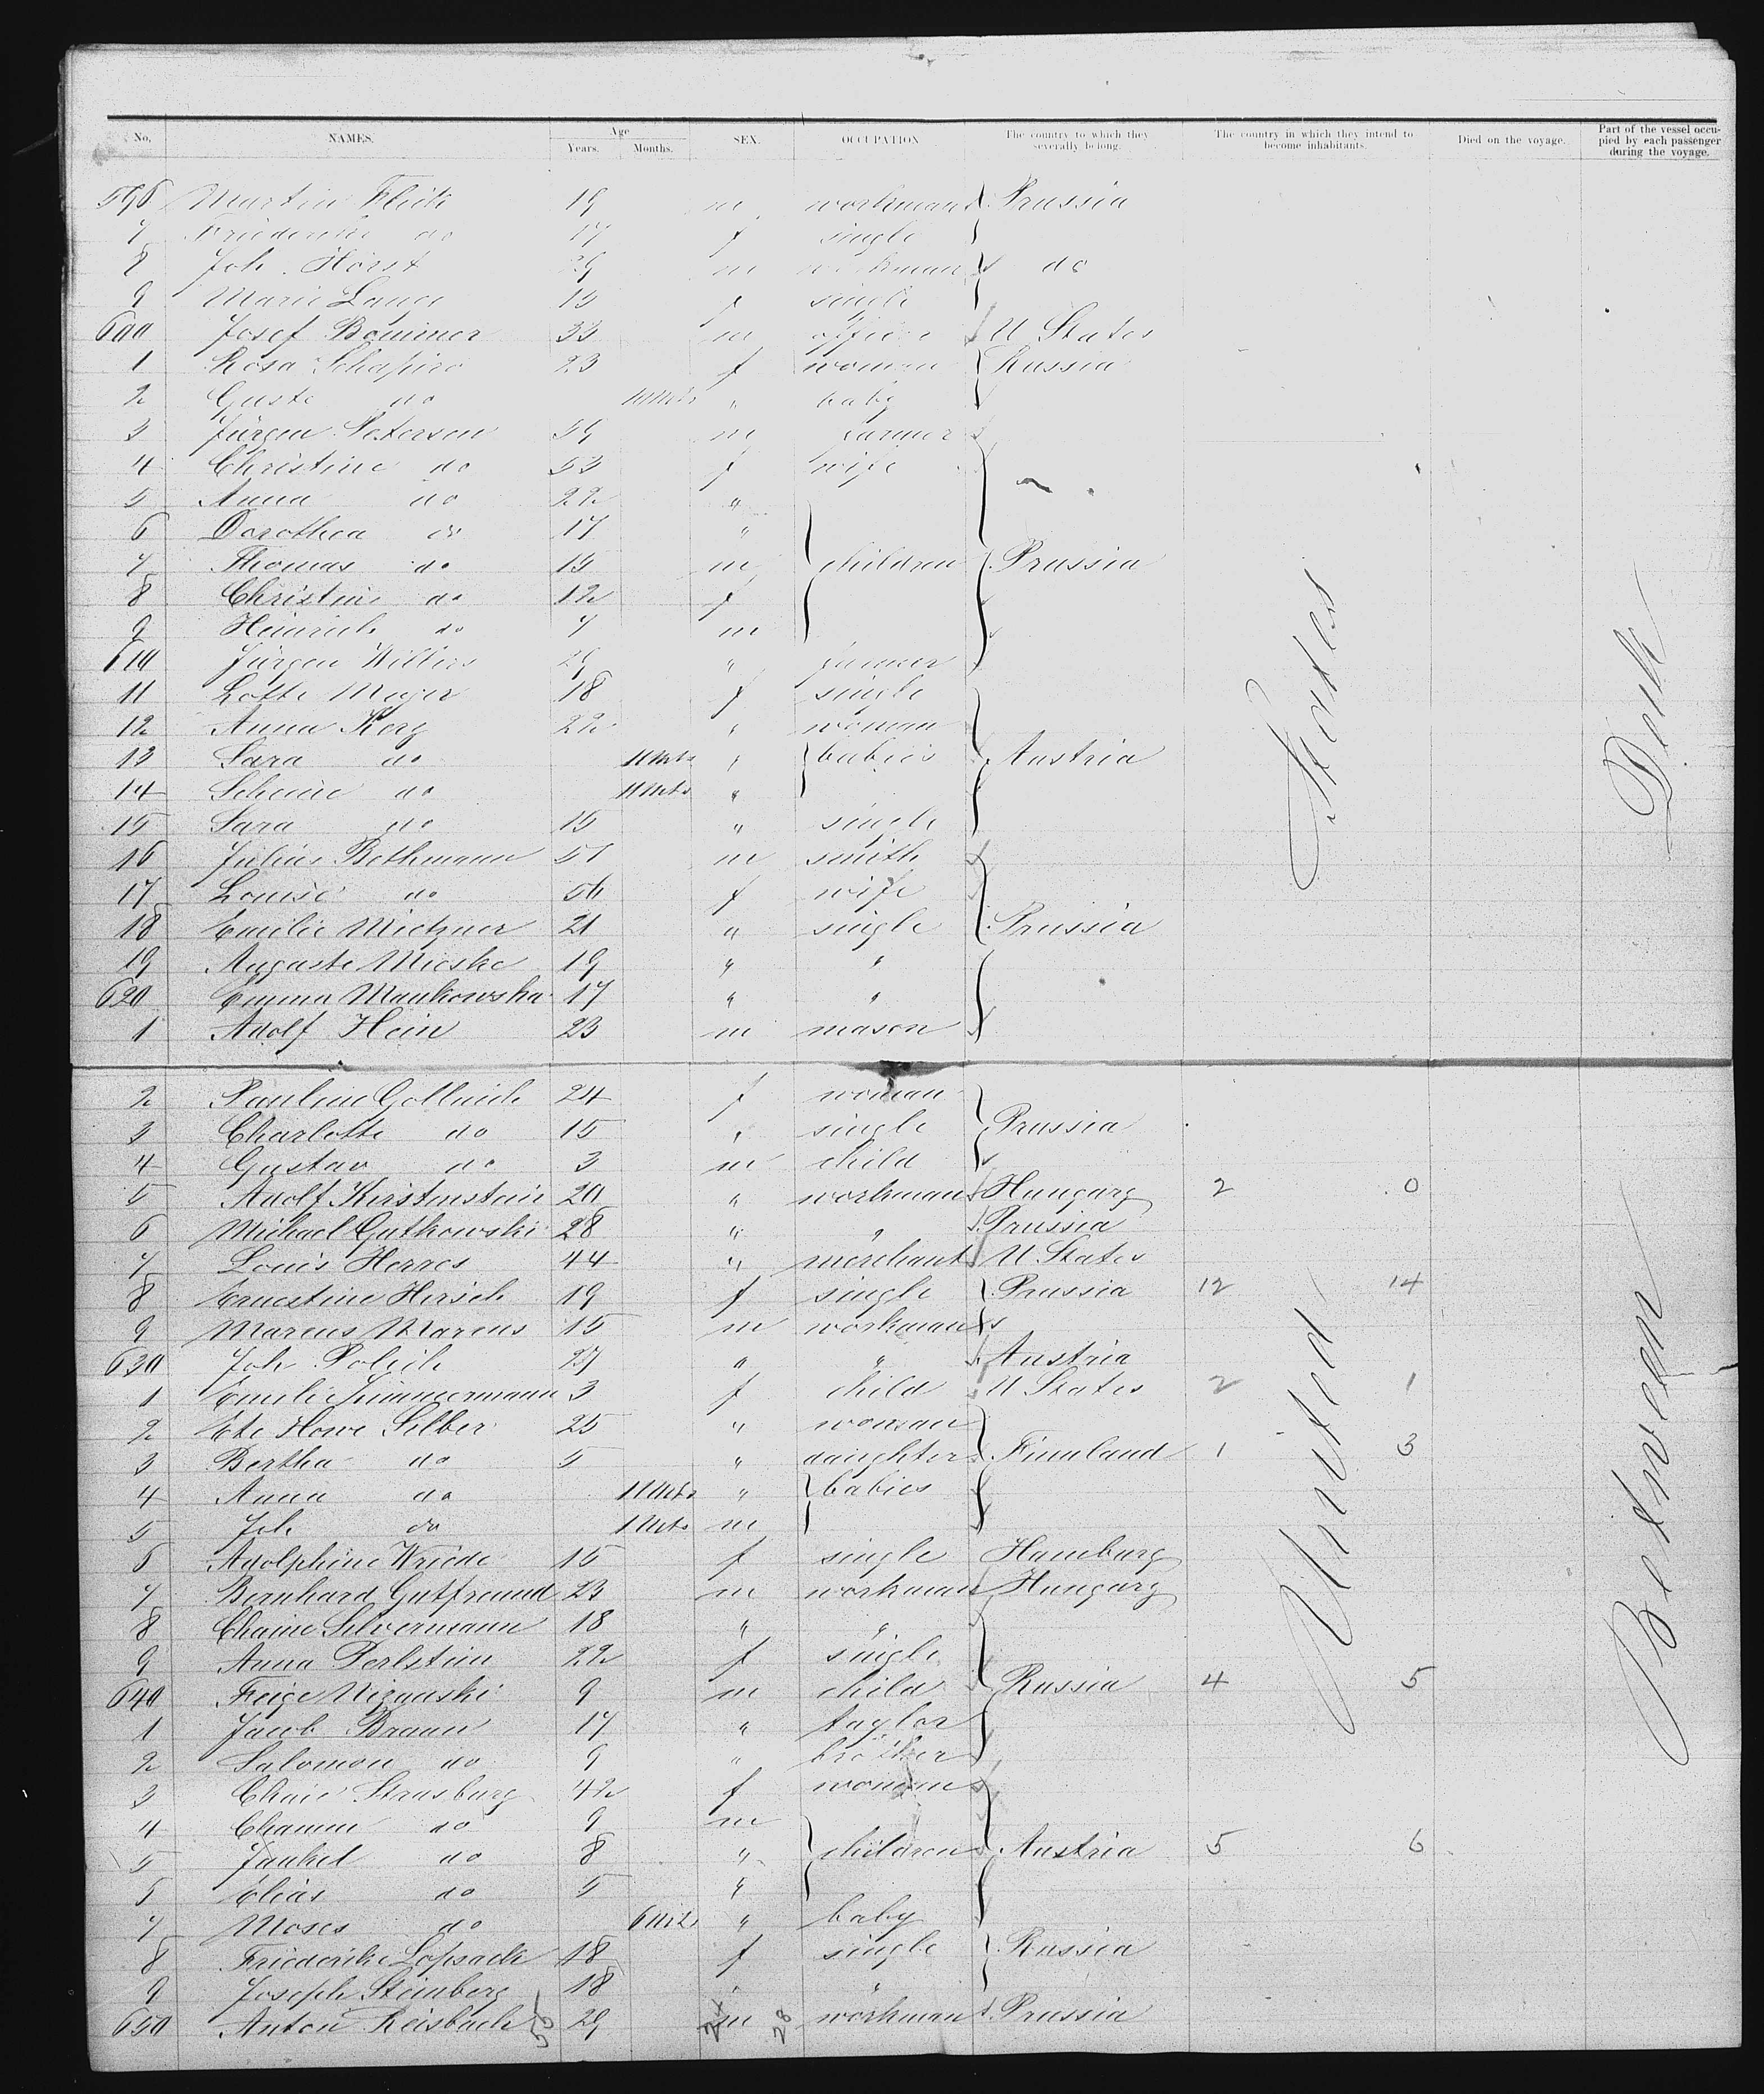 No. NAMES. Age Years. Months. SEX. OCCUPATION The country to which they severally belong. The country in which they intend to become inhabitants. Died on the voyage. Part of the vessel occupied by each passenger during the voyage.
596 Martin Flick 19 m workman Prussia
7 Friederike do 17 f single
8 Joh. Horst 29 m workman do
9 Marie Lange 15 f single
600 Josef 33 m U States
1 Rosa Schapiro 23 f woman Russia
2 Guste do 11 Mts " baby
3 Jürgen Petersen 59 m farmer
4 Christine do 53 f wife
5 Anna do 22 "
6 Dorothea do 17 "
7 Thomas do 15 m children Prussia
8 Christine do 12 f
9 Heinrich do 7 m
610 Jürgen Wilters 29 " farmer
11 Lotte Meyer 18 f single
12 Anna Kerg 22 " woman
13 Sara do 11 Mts " babies Austria
14 Scheine do 11 Mts "
15 Sara do 15 " single
16 Julius Bethmann 51 m smith
17 Louise do 56 f wife
18 Emilie Mietzner 21 " single Prussia
19 Auguste Mieske 19 " "
620 Emma Mankowska 17 " "
1 Adolf Hein 23 m mason
2 Pauline Gollnick 24 f woman
3 Charlotte do 15 " single Prussia
4 Gustav do 3 m child
5 Adolf Kirstenstein 20 " workman Hungary 2 0
6 Michael Gutkowski 28 " " Prussia
7 Louis Herres 44 " merchant U States
8 Ernestine Hirsch 19 f single Prussia 12 14
9 Marcus Marcus 15 m workman
630 Joh Polich 27 " " Austria
1 Emilie Zimmermann 3 f child U States 2 1
2 Ete Howe Silber 25 " woman
3 Bertha do 5 " daughter Finnland 1 3
4 Anna do 11 Mts " babies
5 Joh do 1 Mts m
6 Adolphine Wriede 15 f single Hamburg
7 Bernhard Gutfreund 23 m workman Hungary
8 Chaine Silvermann 18 " "
9 Anna Perlstein 22 f single
640 Feige Niznaski 9 m child Russia 4 5
1 Jacob Braun 17 " taylor
2 Salomon do 9 " brother
3 Chaie Strasburg 42 f woman
4 Chamm do 9 m
5 Jankel do 8 " children Austria 5 6
6 Elias do 5 "
7 Moses do 6 Mts " baby
8 Friederike Lopsack 18 f single Russia
9 Joseph Steinberg 18 " "
650 Anton Reisbach 29 m workman Prussia
55 24 28
United States
Between Deck